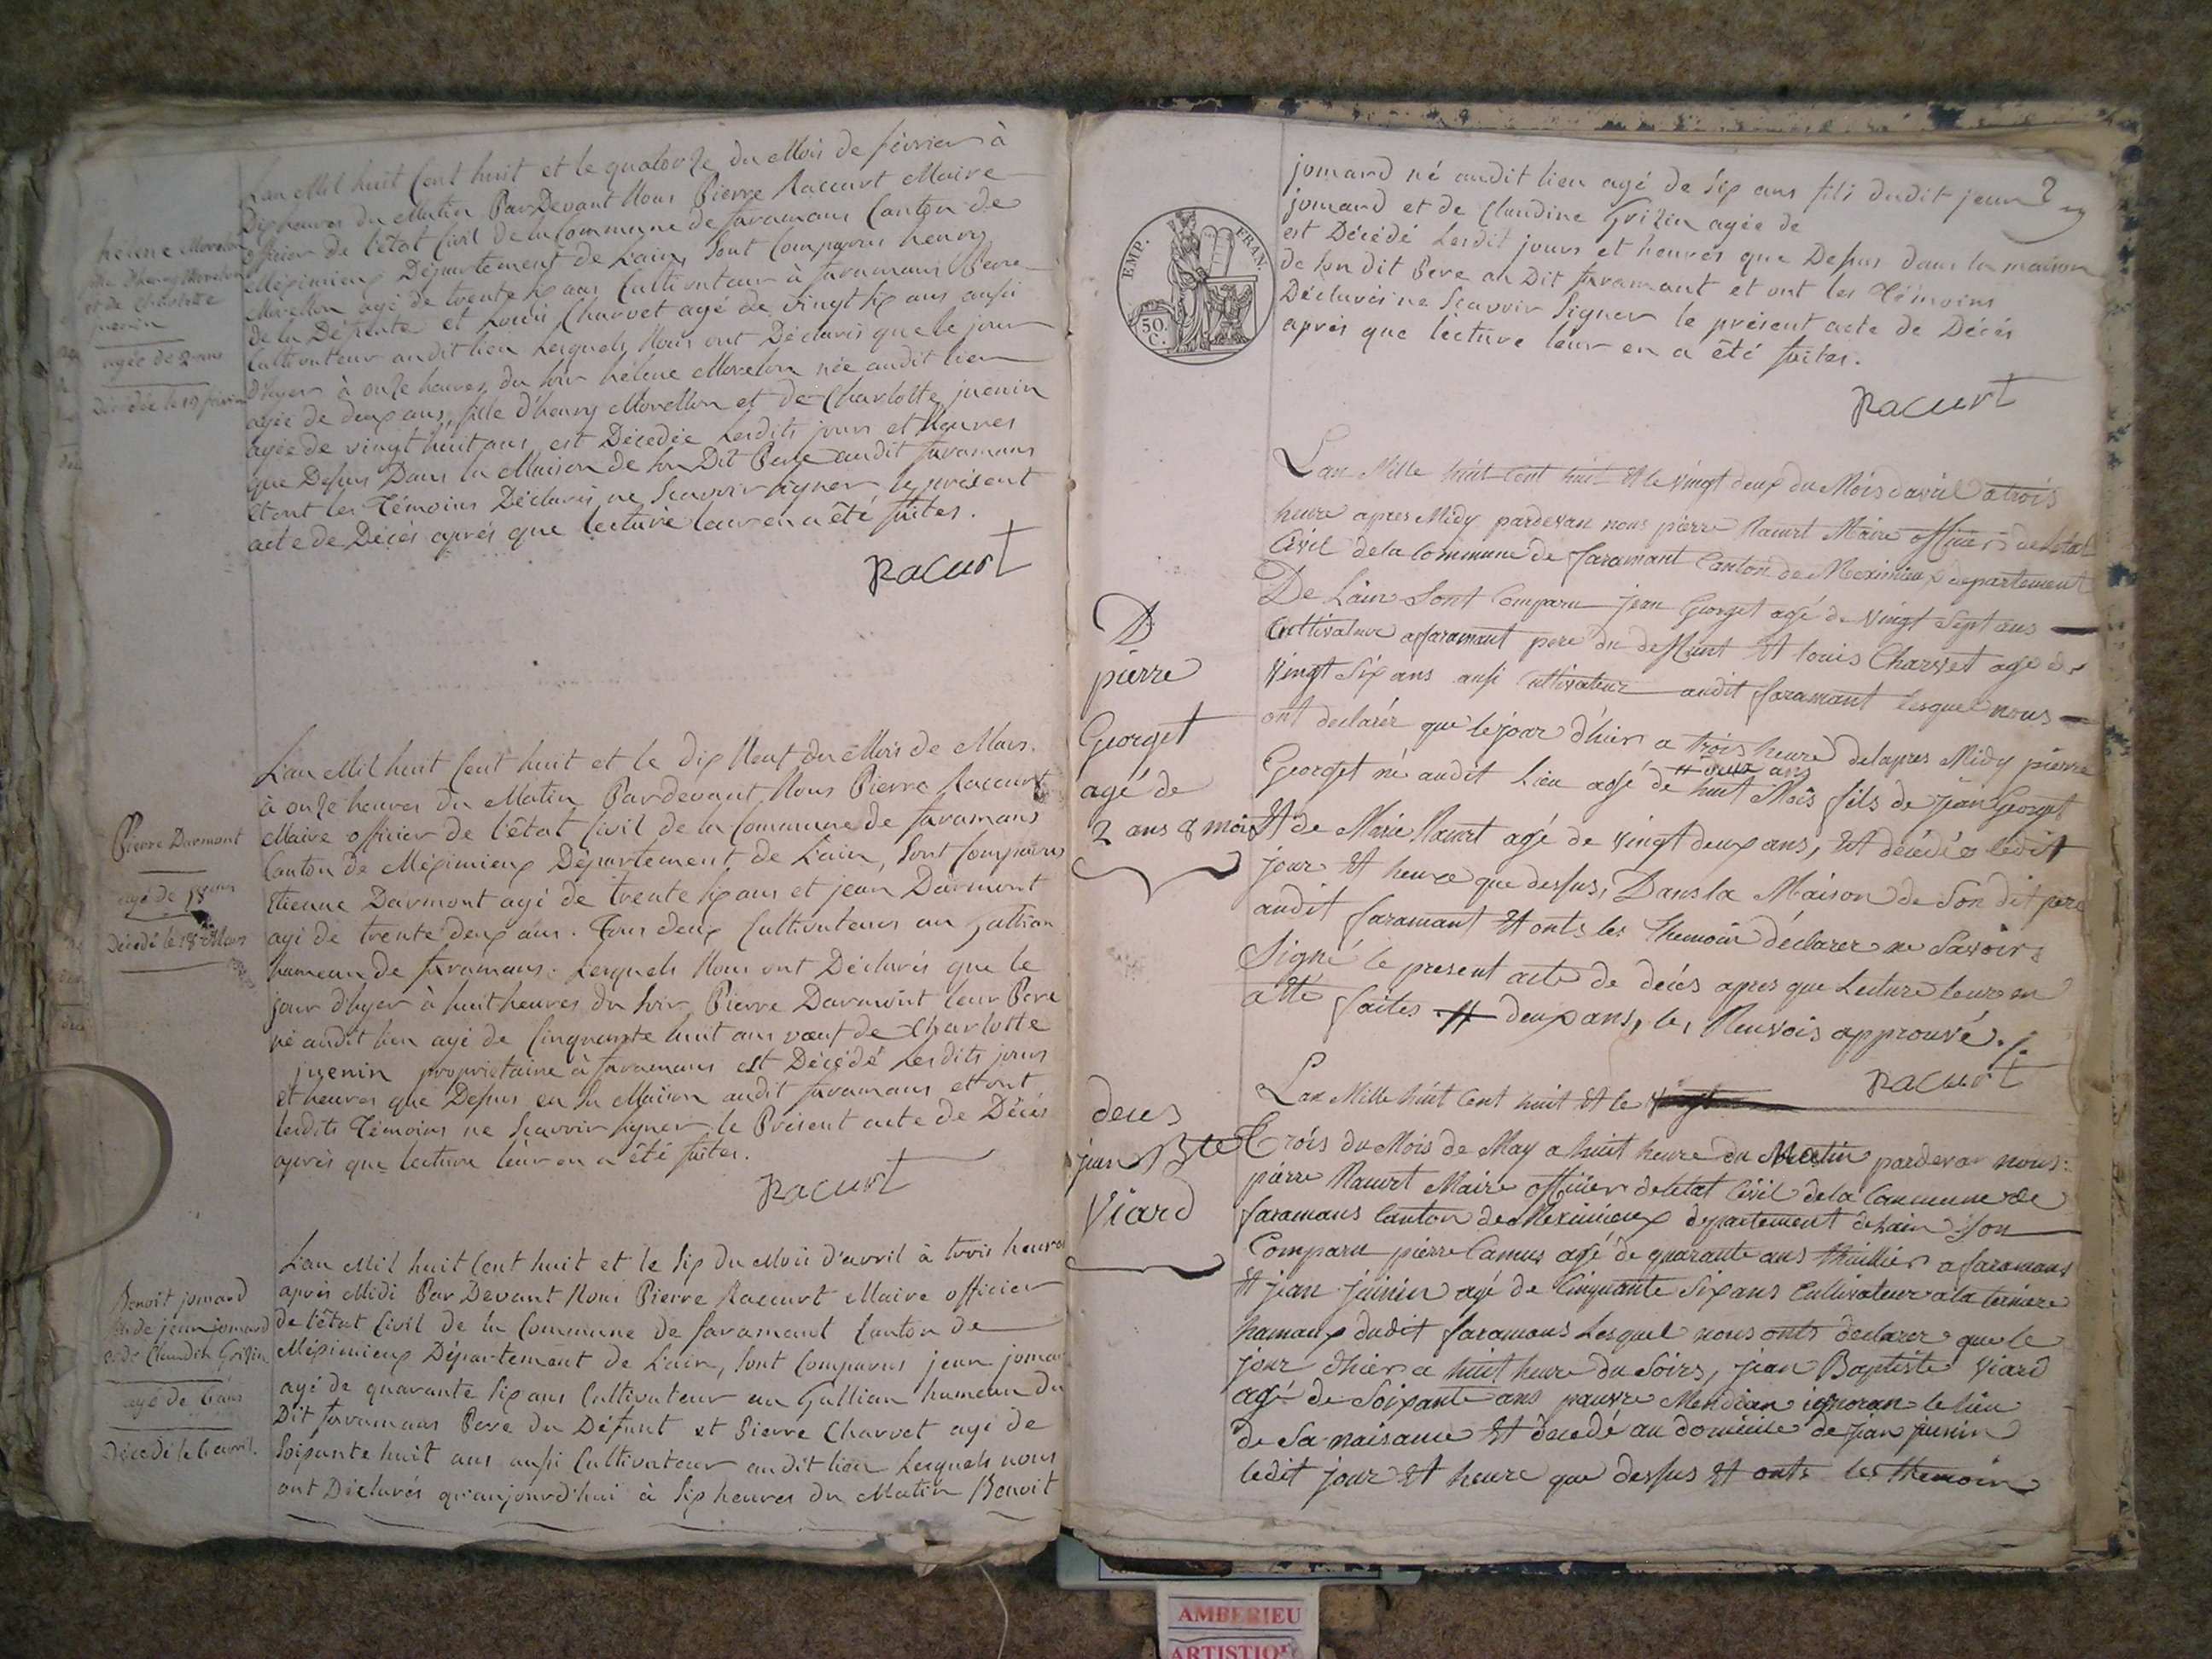 L'an Mil huit Cent huit et le quatorze du Mois de février à
Dix heures du Matin Par Devant Nous Pierre Raccurt Maire
officier de l'état Civil de la Commune de faramans Canton de
Meximieux Département de L'ain, Sont Comparus henry
Morellon agé de trente six ans Cultivateur à faramans Pere
de la Défunte et Louis Charvet agé de vingt six ans aussi
Cultivateur audit lieu Lesquels Nous ont Déclarés que le jour
d'hyer à onze heures du soir héléne Morelon née audit lieu
agée de deux ans, fille d'henry Morellon et de Charlotte juenin
agée de vingt huit ans est Décedée Lesdits jours et Heures
que Dessus Dans la Maison de son Dit Pere audit faramans
et ont les Témoins Déclarés ne Scavoir signer le présent
acte de Décés aprés que lecture leur en a été faites.
Racurt
helene Morelon
fille d'henry Morelon
et de Charlotte
juenin
agée de 2 ans
Décedée le 13 février
L'an Mil huit Cent huit et le dix Neuf du Mois de Mars
à onze heures du Matin Pardevant Nous Pierre Raccurt
Maire officier de l'état Civil de la Commune de faramans
Canton de Meximieux Département de L'ain, Sont Comparus
Etienne Darmont agé de trente six ans et jean Darmont
agé de trente deux ans. Tous deux Cultivateurs au Gallian
hameau de faramans. Lesquels Nous ont Déclarés que le
jour d'hyer à huit heures du soir Pierre Darmont leur Pere
né audit lieu agé de Cinquante huit ans veuf de Charlotte
juenin proprietaire à faramans est Décédé Lesdits jours
et heures que Dessus en sa Maison audit faramans et ont
lesdits Témoins ne Scavoir signer le Présent acte de Décés
aprés que lecture leur en a été faites.
Racurt
Pierre Darmont
agé de 58 ans
Décedé le 18 Mars
L'an Mil huit Cent huit et le Six du Mois d'avril à trois heures
aprés Midi Par Devant Nous Pierre Raccurt Maire officier
de l'état Civil de la Commune de faramant Canton de
Méximieux Département de L'ain, Sont Comparus jean jomard
agé de quarante six ans Cultivateur au Gallian hameau du
Dit faramans Pere du Défunt et Pierre Charvet agé de
Soixante huit ans aussi Cultivateur audit lieu Lesquels nous
ont Déclarés qu'aujourd'hui à Six heures du Matin Benoit
Benoit jomard
fils de jean jomard
et de Claudine Grizin
agé de 6 ans
Décedé le 6 avril.
jomard né audit lieu agé de Six ans fils dudit jean
jomard et de Claudine Grizin agée de
est Décédé Lesdit jours et heures que Dessus dans la maison
de son dit Pere au Dit faramant et ont les Témoins
Déclarés ne Scavoir Signer le présent acte de Décés
aprés que lecture leur en a été faites.
Racurt
EMP. FRAN.
50.
C.
Lan Mille huit Cent huit Et le vingt deux du Mois davril a trois
heure apres Midy pardevan nous pierre Racurt Maire officier de letat
Civil de la Commune de faramant Canton de Meximieux departement
De Lain Sont Comparu jean Georget agé de vingt Sept ans
Cultivateur a faramant pere du deffunt Et louis Charvet agé de
vingt Six ans ausi Cultivateur audit faramant lesquel nous
ont declarér que le jour d'hier a trois heure delapres Midy pierre
Georget né audit Lieu agé de huit Mois fils de jean Georget
Et de Marie Racurt agé de vingt deux ans, Est décédé ledit
jour Et heure que dessus, Dans la Maison de Son dit pere
audit faramant Et onts les themoin déclarer ne Savoir
Signé le present acte de decés apres que Lecture leur en
a été faites # deux ans, le, Renvois approuvé.
Racurt
D
pierre
Georget
agé de
2 ans 8 mois
Lan Mille huit Cent huit Et le
trois du Mois de May a huit heure du Matin pardevan nous
pierre Racurt Maire officier de letat Civil de la Commune de
faramans Canton de Meximieux departement de Lain Son
Comparu pierre Camus agé de quarante ans thuillier a faramans
Et jean juinin agé de Cinquante Six ans Cultivateur a la
hamaux dudit faramans Lesquel nous onts declarer que le
jour dhier a huit heure du Soirs, jean Baptiste Viard
agé de Soixante ans pauvre Mendian ignoran le lieu
de Sa naisance Et decedé au domicile de jean juinin
ledit jour Et heure que dessus Et onts les themoin
deces
jean Bte
Viard
AMBERIEU
ARTISTIQUE